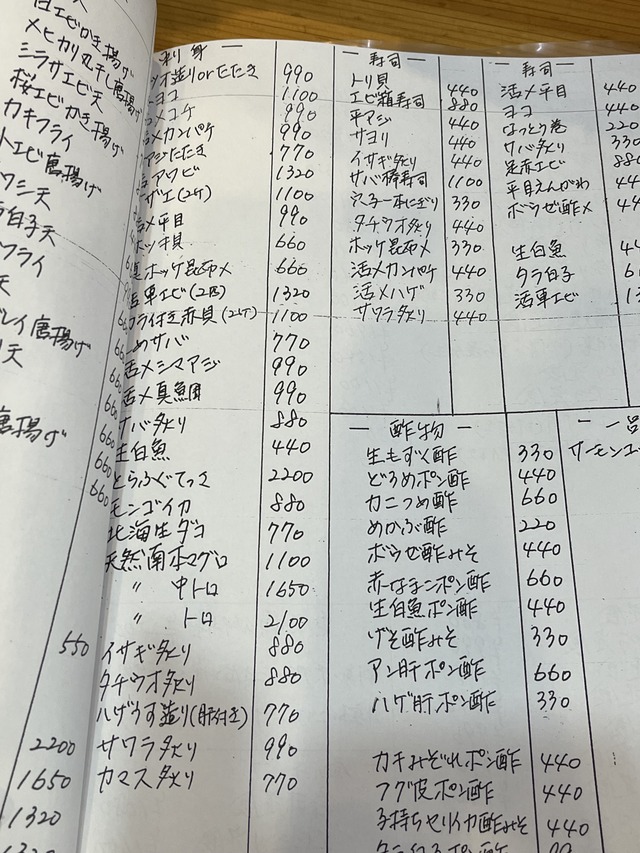 白エビかき揚げ
メヒカリ丸干し唐揚げ
シラサエビ天
桜エビかき揚げ
カキフライ
トエビ唐揚げ
ワシ天
白子天
フライ
天
レイ唐揚げ
天
唐揚げ
660
660
660
660
660
660
550
2200
1650
1320
刺り身
造りorたたき 990
ヨコ 1100
990
活〆カンパチ 990
アジたたき 770
アワビ 1320
ザエ(2ケ) 1100
活〆平目 990
ホッキ貝 660
真ホッケ昆布〆 660
車エビ(2匹) 1320
付き赤貝(2ケ) 1100
〆サバ 770
活〆シマアジ 990
活〆真鯛 990
サバ炙り 880
生白魚 440
とらふぐてっさ 2200
モンゴイカ 880
北海生ダコ 770
天然南本マグロ 1100
〃 中トロ 1650
〃 トロ 2100
イサギ炙り 880
タチウオ炙り 880
ハゲうす造り(肝付き) 770
サワラ炙り 990
カマス炙り 770
— 寿司 —
トリ貝 440
エビ箱寿司 880
平アジ 440
サヨリ 440
イサギ炙り 440
サバ棒寿司 1100
穴子一本にぎり 330
タチウオ炙り 440
ホッケ昆布〆 330
活〆カンパチ 440
活〆ハゲ 330
サワラ炙り 440
— 寿司 —
活〆平目 440
ヨコ 440
なっとう巻 220
サバ炙り 330
足赤エビ 880
平目えんがわ 44
ボウゼ酢〆 44
生白魚 44
タラ白子
活車エビ
— 酢物 —
生もずく酢 330
どろめポン酢 440
カニつめ酢 660
めかぶ酢 220
ボウゼ酢みそ 440
赤なまこポン酢 660
生白魚ポン酢 440
げそ酢みそ 330
アン肝ポン酢 660
ハゲ肝ポン酢 330
カキみぞれポン酢 440
フグ皮ポン酢 440
子持ちヤリイカ酢みそ 440
— 一品
サーモンユ